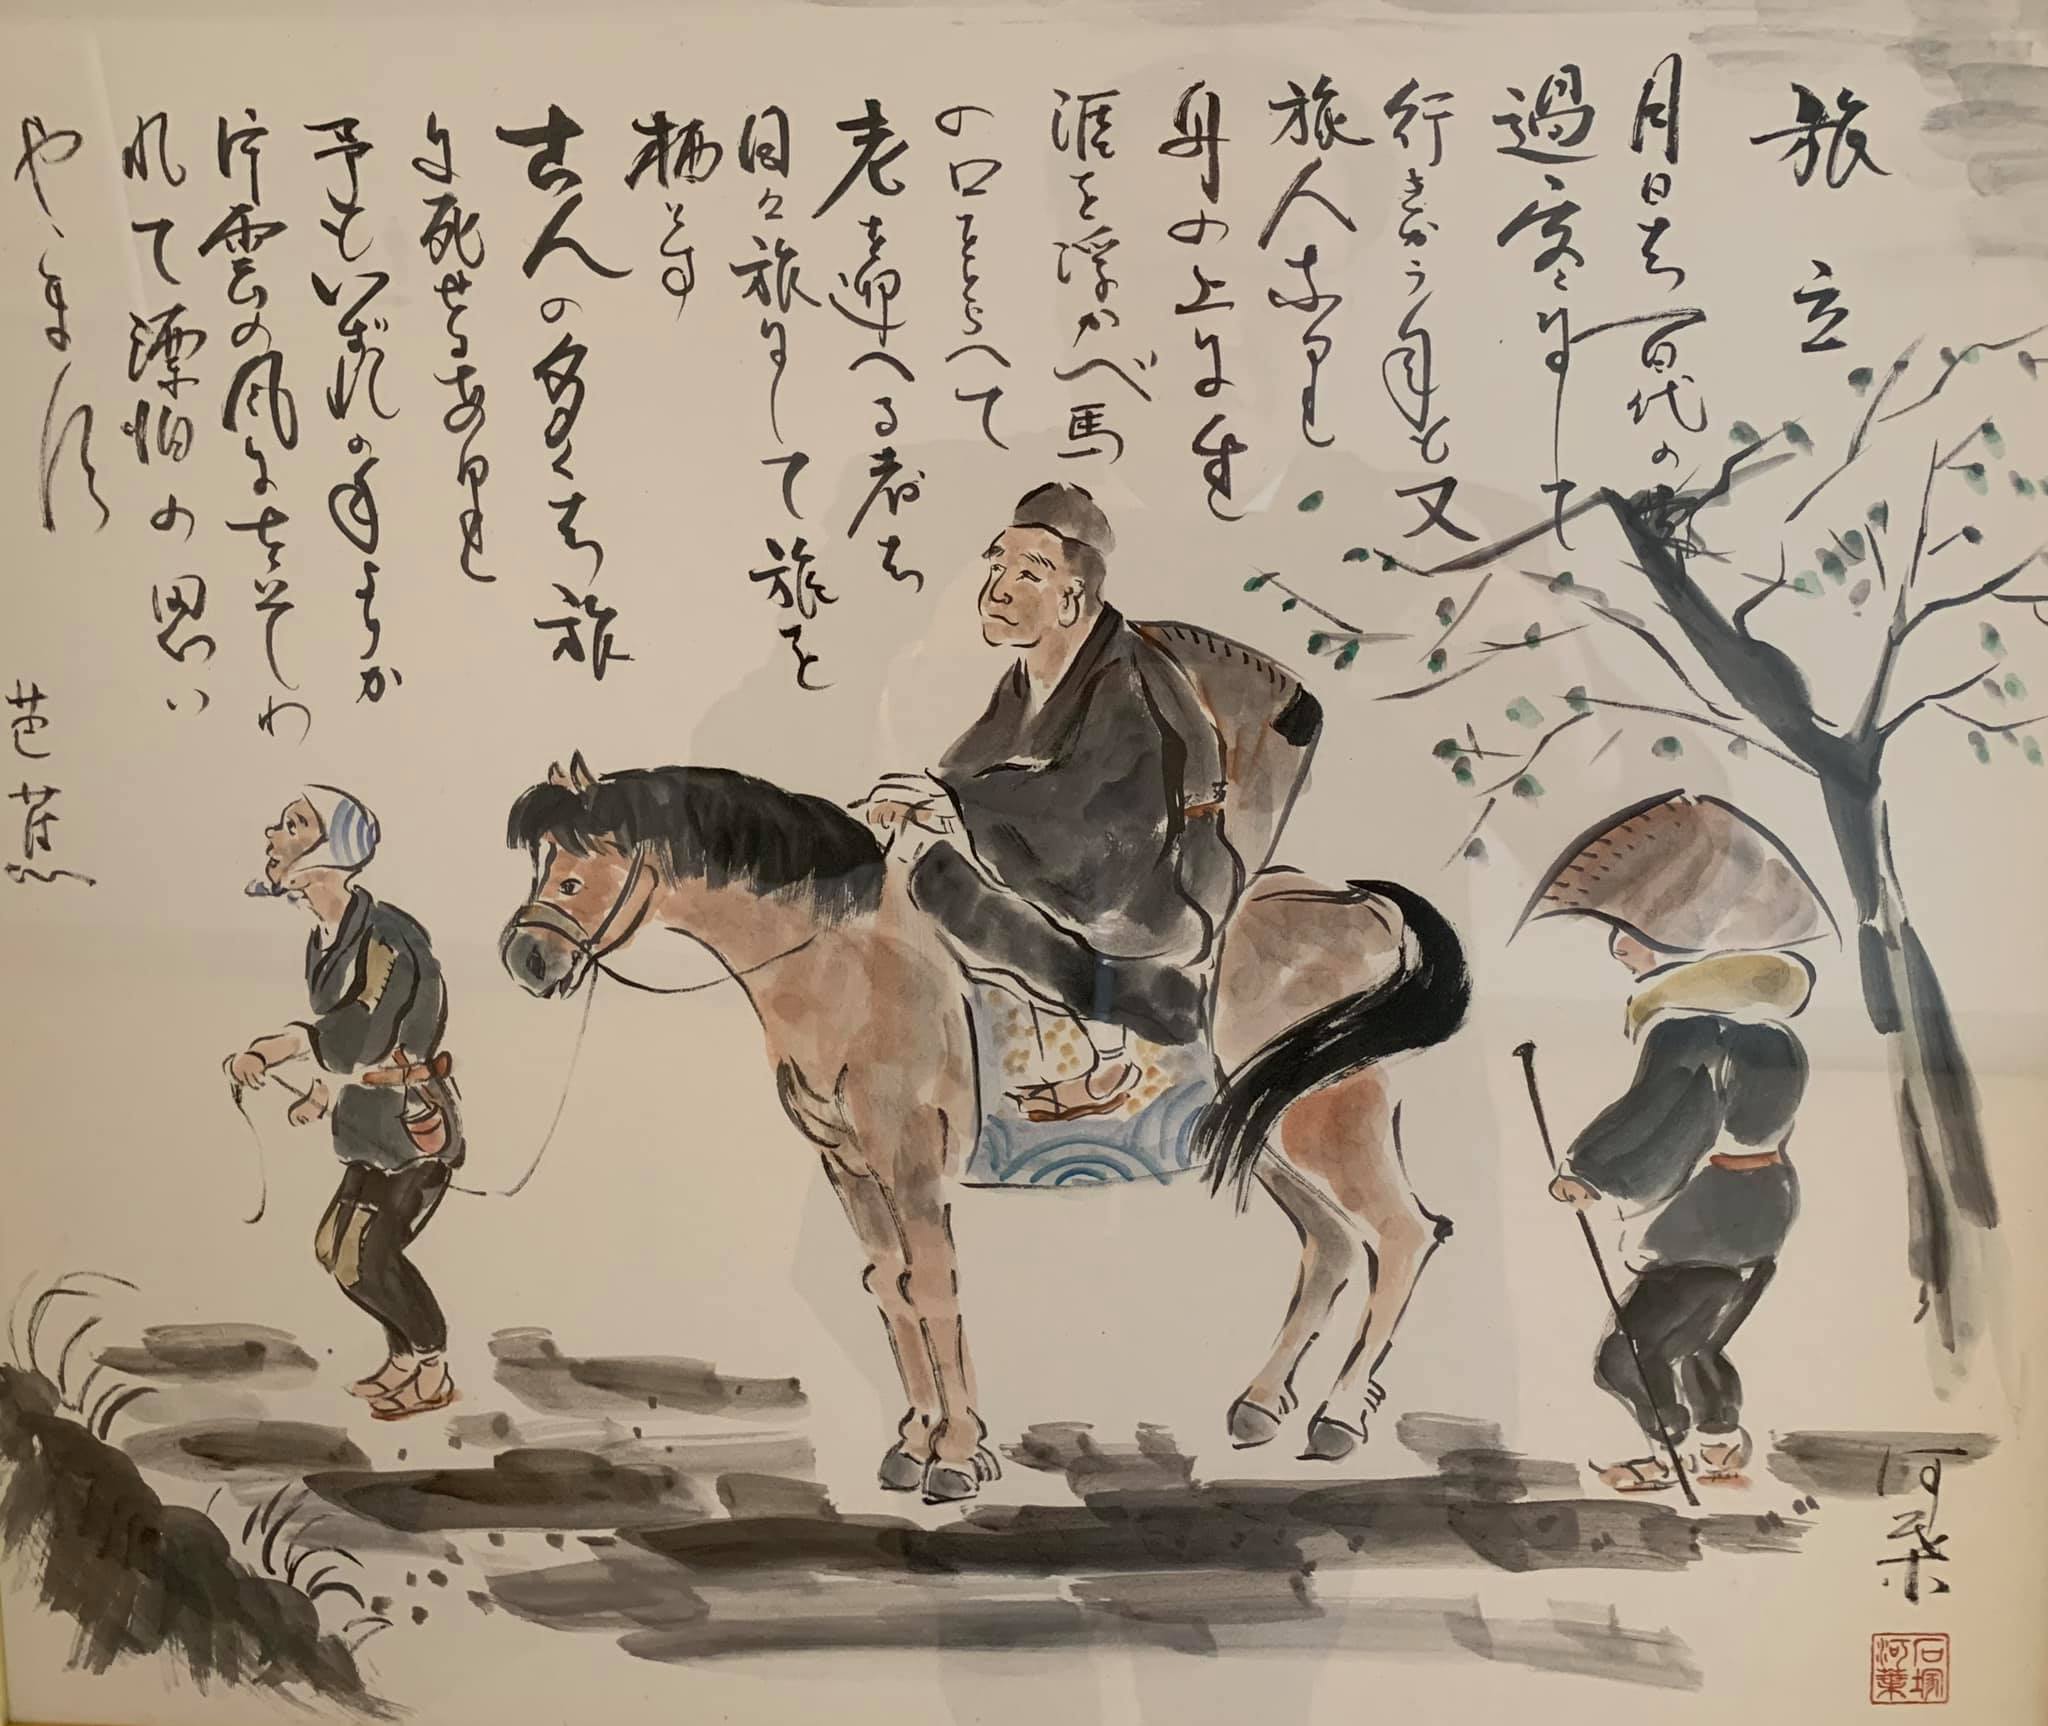 旅立
月日は百代の
過客にして
行きかう年も又
旅人なり
舟の上に生
涯を浮かべ馬
の口をとらへて
老を迎へる者は
日々旅にして旅を
栖とす
古人の多く旅
に死せるあり
予もいずれの年よりか
片雲の風にさそわ
れて漂怕の思い
やまず
芭蕉
河葉
石塚
河葉